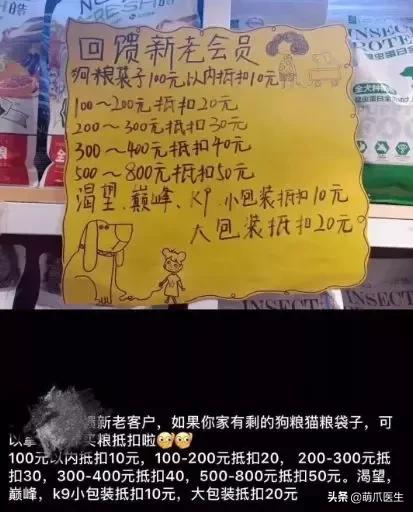 FRESH
INSECT
PROTE
昆虫蛋白
回馈新老会员
狗粮袋子100元以内抵扣10元
100～200元抵扣20元
200～300元抵扣30元
300～400元抵扣40元
500～800元抵扣50元
渴望、巅峰、K9小包装抵扣10元
大包装抵扣20元。
INSECT
馈新老客户，如果你家有剩的狗粮猫粮袋子，可
以拿 买粮抵扣啦🙄🙄
100元以内抵扣10元，100-200元抵扣20， 200-300元抵
扣30，300-400元抵扣40，500-800元抵扣50元。渴望，
巅峰，k9小包装抵扣10元，大包装抵扣20元
头条 @萌爪医生